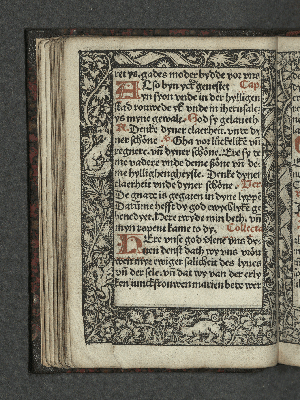 ret ys. gades moder bydde vor vns
Also byn yck geuestet Cap
yn syon vnde in der hylligen
stad rouwede yk vnde in iherusale
ys myne gewalt. God sy gelaueth
R. Dencke dyner claerheit. vnde dy
ner schöne Gha vor luckelike vn
regnere. vn dyner schöne. Ere sy de
me vadere vnde deme söne vn de
me hyllighen gheyste. Dencke dyner
claerheit vnde dyner schöne. Ver
De gnare is gegaten in dyne lyppe
Darume hefft dy god ewychlyke ge
benedyet. Here twyde min beth. vn
myn ropent kame to dy. Collecta
Here vnse god vlene vns dy
nen denst dath wy vns vröu
wen myt ewiger salicheit des lyues
vn der sele. vn dat wy van der erly
ken iunckfrouwen marien bede wer